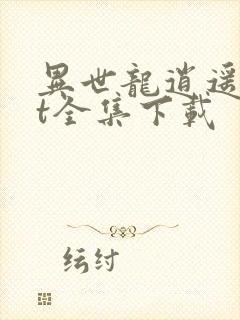 異世龍逍遥
t全集下載
纭纣